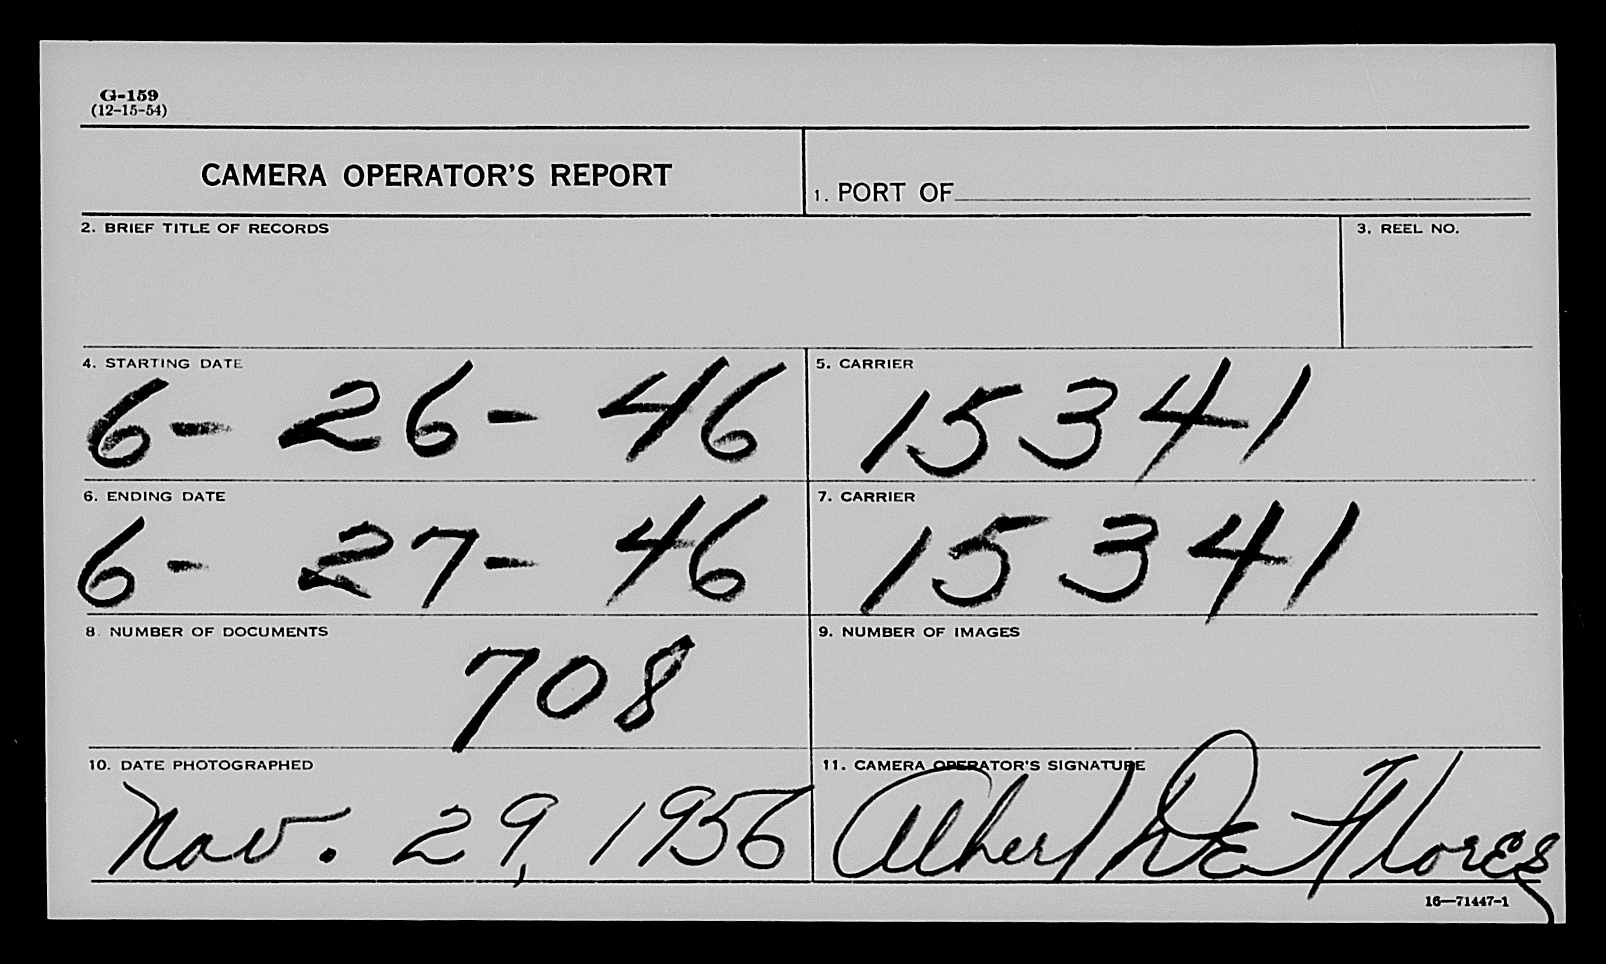 G-159
(12-15-54)
CAMERA OPERATOR'S REPORT
1. PORT OF
2. BRIEF TITLE OF RECORDS
3. REEL NO.
4. STARTING DATE
6- 26- 46
5. CARRIER
15341
6. ENDING DATE
6- 27- 46
7. CARRIER
15341
8. NUMBER OF DOCUMENTS
708
9. NUMBER OF IMAGES
10. DATE PHOTOGRAPHED
Nov. 29, 1956
11. CAMERA OPERATOR'S SIGNATURE
Albert DE Flores
16—71447-1